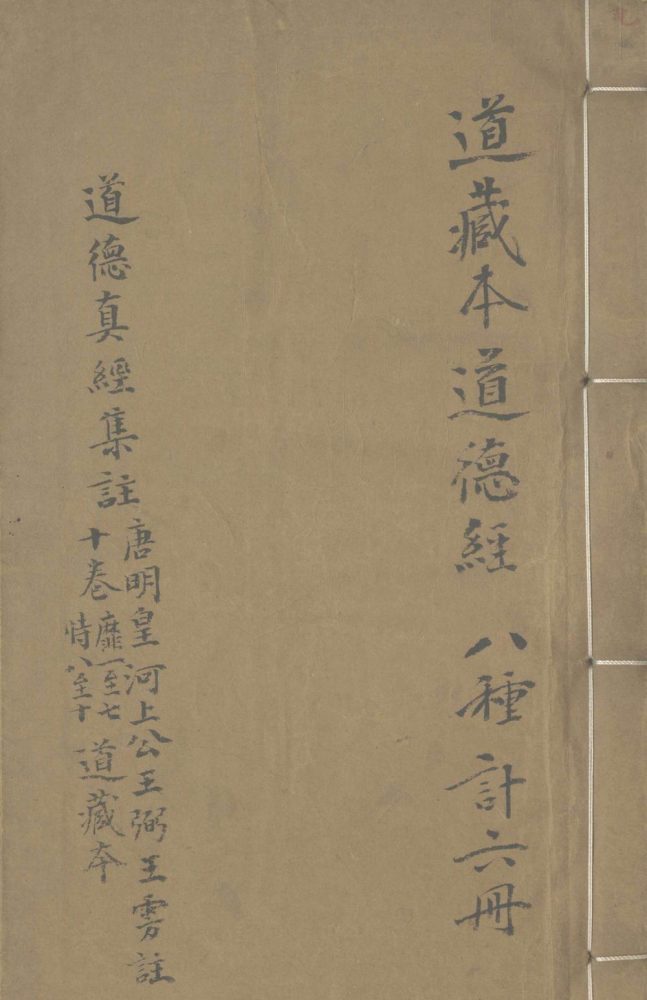 道藏本道德經 八種計六冊
道德真經集註
唐明皇河上公王弼王雱註
十卷
靡一至七
恃八至十
道藏本